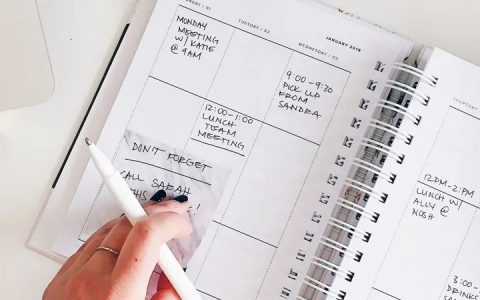 MONDAY / 01
TUESDAY / 02
WEDNESDAY / 03
JANUARY 2018
THURSDAY
MONDAY
MEETING
W/ KATIE
@ 9AM
12:00-1:00
LUNCH
TEAM
MEETING
9:00-9:30
PICK UP
FROM
SANDRA
DON'T FORGET
CALL SARAH
THIS
!
12PM-2PM
LUNCH W/
ALLY @
NOSH
3:00
DRINKS